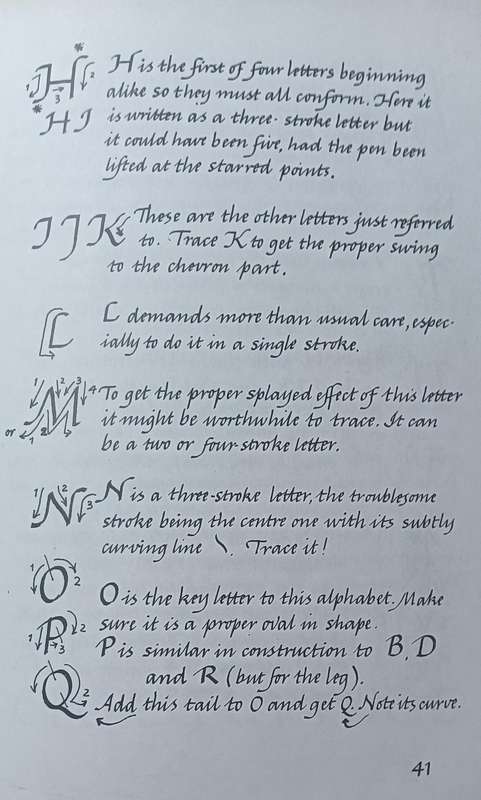 H is the first of four letters beginning
alike so they must all conform. Here it
is written as a three-stroke letter but
it could have been five, had the pen been
lifted at the starred points.
I J K These are the other letters just referred
to. Trace K to get the proper swing
to the chevron part.
L L demands more than usual care, espec-
ially to do it in a single stroke.
M To get the proper splayed effect of this letter
it might be worthwhile to trace. It can
or be a two or four-stroke letter.
N N is a three-stroke letter, the troublesome
stroke being the centre one with its subtly
curving line \. Trace it!
O O is the key letter to this alphabet. Make
sure it is a proper oval in shape.
P P is similar in construction to B, D
and R (but for the leg).
Q Add this tail to O and get Q. Note its curve.
41